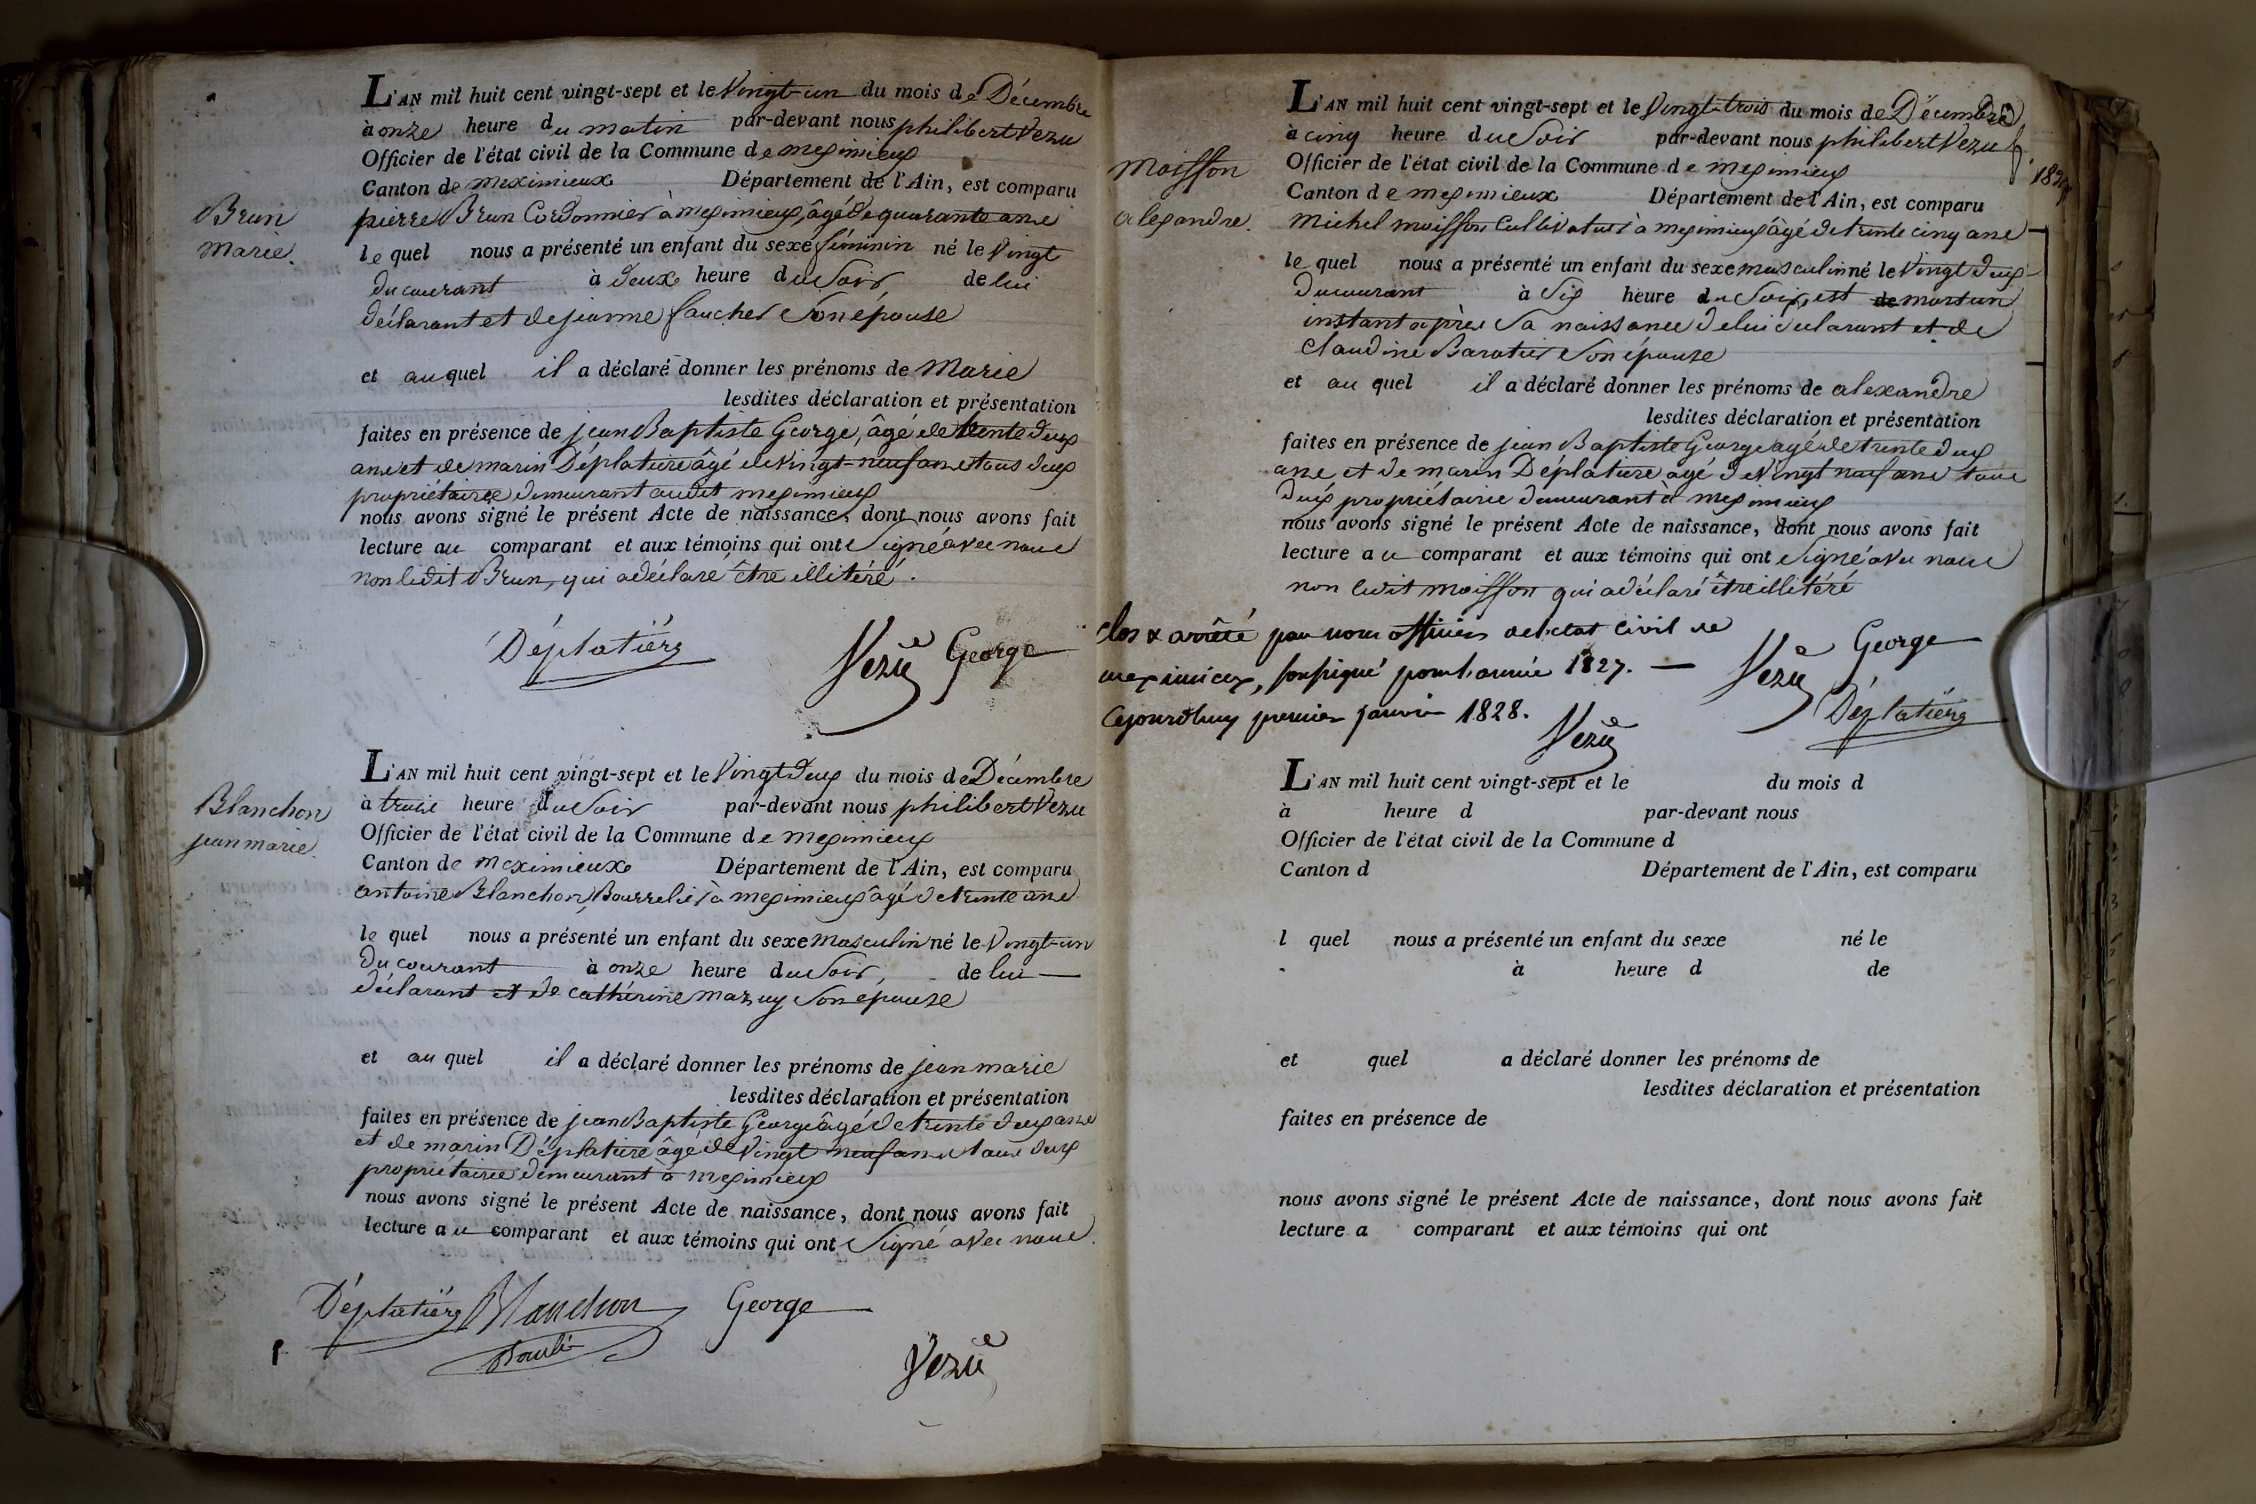 L'AN mil huit cent vingt-sept et le Vingt-un du mois de Décembre
à onze heure du matin par-devant nous philibert Vezu
Officier de l'état civil de la Commune de meximieux
Canton de meximieux Département de l'Ain, est comparu
pierre Brun Cordonnier à meximieux, âgé de quarante ans
Brun
Marie.
le quel nous a présenté un enfant du sexe féminin né le Vingt
du courant à deux heure du Soir de lui
déclarant et de jeanne faucher Son épouse
et au quel il a déclaré donner les prénoms de Marie
lesdites déclaration et présentation
faites en présence de jean Baptiste George, âgé de trente deux
ans et de marin Déplatière âgé de vingt-neuf ans tous deux
propriétaires demeurant audit meximieux
nous avons signé le présent Acte de naissance, dont nous avons fait
lecture au comparant et aux témoins qui ont Signé avec nous
non ledit Brun, qui a déclaré être illitéré.
Déplatière Vezu George
L'AN mil huit cent vingt-sept et le Vingt deux du mois de Décembre
à trois heure du Soir par-devant nous philibert Vezu
Blanchon
jean marie.
Officier de l'état civil de la Commune de meximieux
Canton de meximieux Département de l'Ain, est comparu
antoine Blanchon, Bourrelier à meximieux âgé de trente ans
le quel nous a présenté un enfant du sexe masculin né le Vingt-un
du courant à onze heure du Soir, de lui
déclarant et de cathérine mazuy Son épouse
et au quel il a déclaré donner les prénoms de jean marie
lesdites déclaration et présentation
faites en présence de jean Baptiste George âgé de trente deux ans
et de marin Déplatière âgé de Vingt neuf ans tous deux
propriétaires demeurant à meximieux
nous avons signé le présent Acte de naissance, dont nous avons fait
lecture au comparant et aux témoins qui ont Signé avec nous.
Déplatière Blanchon George
Vezu
L'AN mil huit cent vingt-sept et le Vingt-trois du mois de Décembre
à cinq heure du Soir par-devant nous philibert Vezu
Moisson
alexandre.
Officier de l'état civil de la Commune de meximieux
Canton de meximieux Département de l'Ain, est comparu
michel moisson Cultivateur à meximieux âgé de trente cinq ans
le quel nous a présenté un enfant du sexe masculin né le Vingt deux
du courant à Six heure du Soir, est mort un
instant après Sa naissance de lui déclarant et de
Claudine Baratier Son épouse
et au quel il a déclaré donner les prénoms de alexandre
lesdites déclaration et présentation
faites en présence de jean Baptiste George agé de trente deux
ans et de marin Déplatière agé de Vingt neuf ans tous
deux propriétaires demeurant à meximieux
nous avons signé le présent Acte de naissance, dont nous avons fait
lecture au comparant et aux témoins qui ont Signé avec nous
non ledit moisson qui a déclaré être illitéré
clos & arrêté par nous officier de l'état civil de
meximieux, soussigné pour l'année 1827. —
Cejourd'huy premier janvier 1828.
Vezu
George
Vezu
Déplatière
L'AN mil huit cent vingt-sept et le du mois d
à heure d par-devant nous
Officier de l'état civil de la Commune d
Canton d Département de l'Ain, est comparu
l quel nous a présenté un enfant du sexe né le
à heure d de
et quel a déclaré donner les prénoms de
lesdites déclaration et présentation
faites en présence de
nous avons signé le présent Acte de naissance, dont nous avons fait
lecture a comparant et aux témoins qui ont